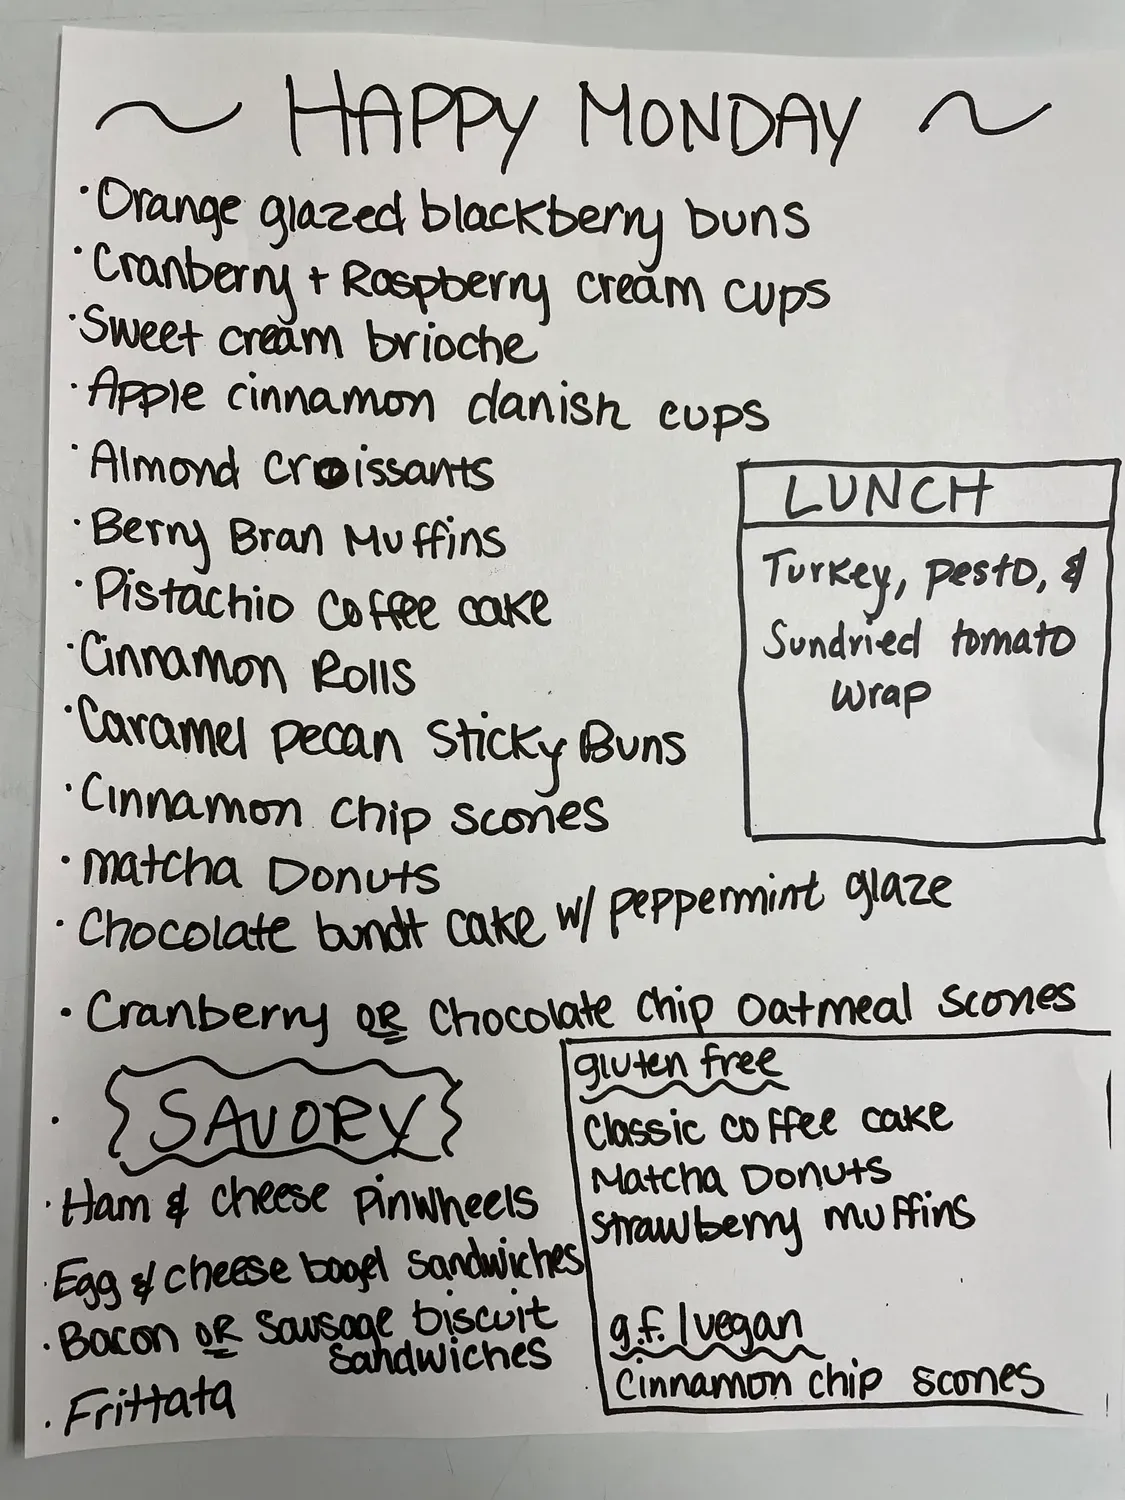 ~ HAPPY MONDAY ~
· Orange glazed blackberry buns
· Cranberry + Raspberry cream cups
· Sweet cream brioche
· Apple cinnamon danish cups
· Almond croissants
· Berry Bran Muffins
· Pistachio Coffee cake
· Cinnamon Rolls
· Caramel pecan Sticky Buns
· Cinnamon chip scones
· matcha Donuts
· Chocolate bundt cake w/ peppermint glaze
· Cranberry OR Chocolate chip oatmeal scones
LUNCH
Turkey, pesto, &
Sundried tomato
wrap
· SAVORY
· Ham & cheese pinwheels
· Egg & cheese bagel sandwiches
· Bacon OR Sausage biscuit
sandwiches
· Frittata
gluten free
Classic coffee cake
Matcha Donuts
Strawberry muffins
g.f. | vegan
Cinnamon chip scones